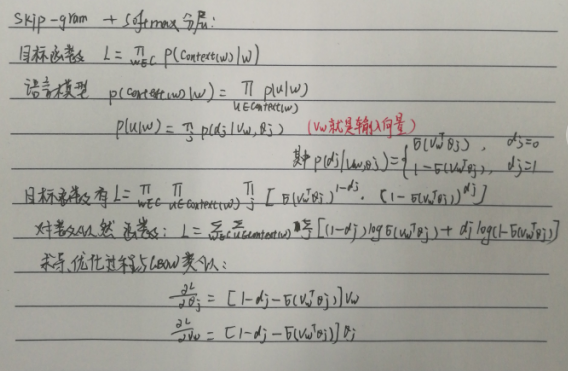 skip-gram + softmax分层:
目标函数 L = ∏_{w∈C} p(Context(w)|w)
语言模型 p(Context(w)|w) = ∏_{u∈Context(w)} p(u|w)
p(u|w) = ∏_j p(dj|Vw,θj) (Vw就是输入向量)
其中 p(dj|Vw,θj) = { σ(Vw^Tθj), dj=0
1-σ(Vw^Tθj), dj=1
目标函数有 L = ∏_{w∈C} ∏_{u∈Context(w)} ∏_j [σ(Vw^Tθj)^{1-dj} · (1-σ(Vw^Tθj))^{dj}]
对数似然函数: L = Σ_{w∈C} Σ_{u∈Context(w)} Σ_j [(1-dj)logσ(Vw^Tθj) + dj log(1-σ(Vw^Tθj))]
求导、优化过程与CBOW类似:
∂L/∂θj = [1-dj-σ(Vw^Tθj)]Vw
∂L/∂Vw = [1-dj-σ(Vw^Tθj)]θj